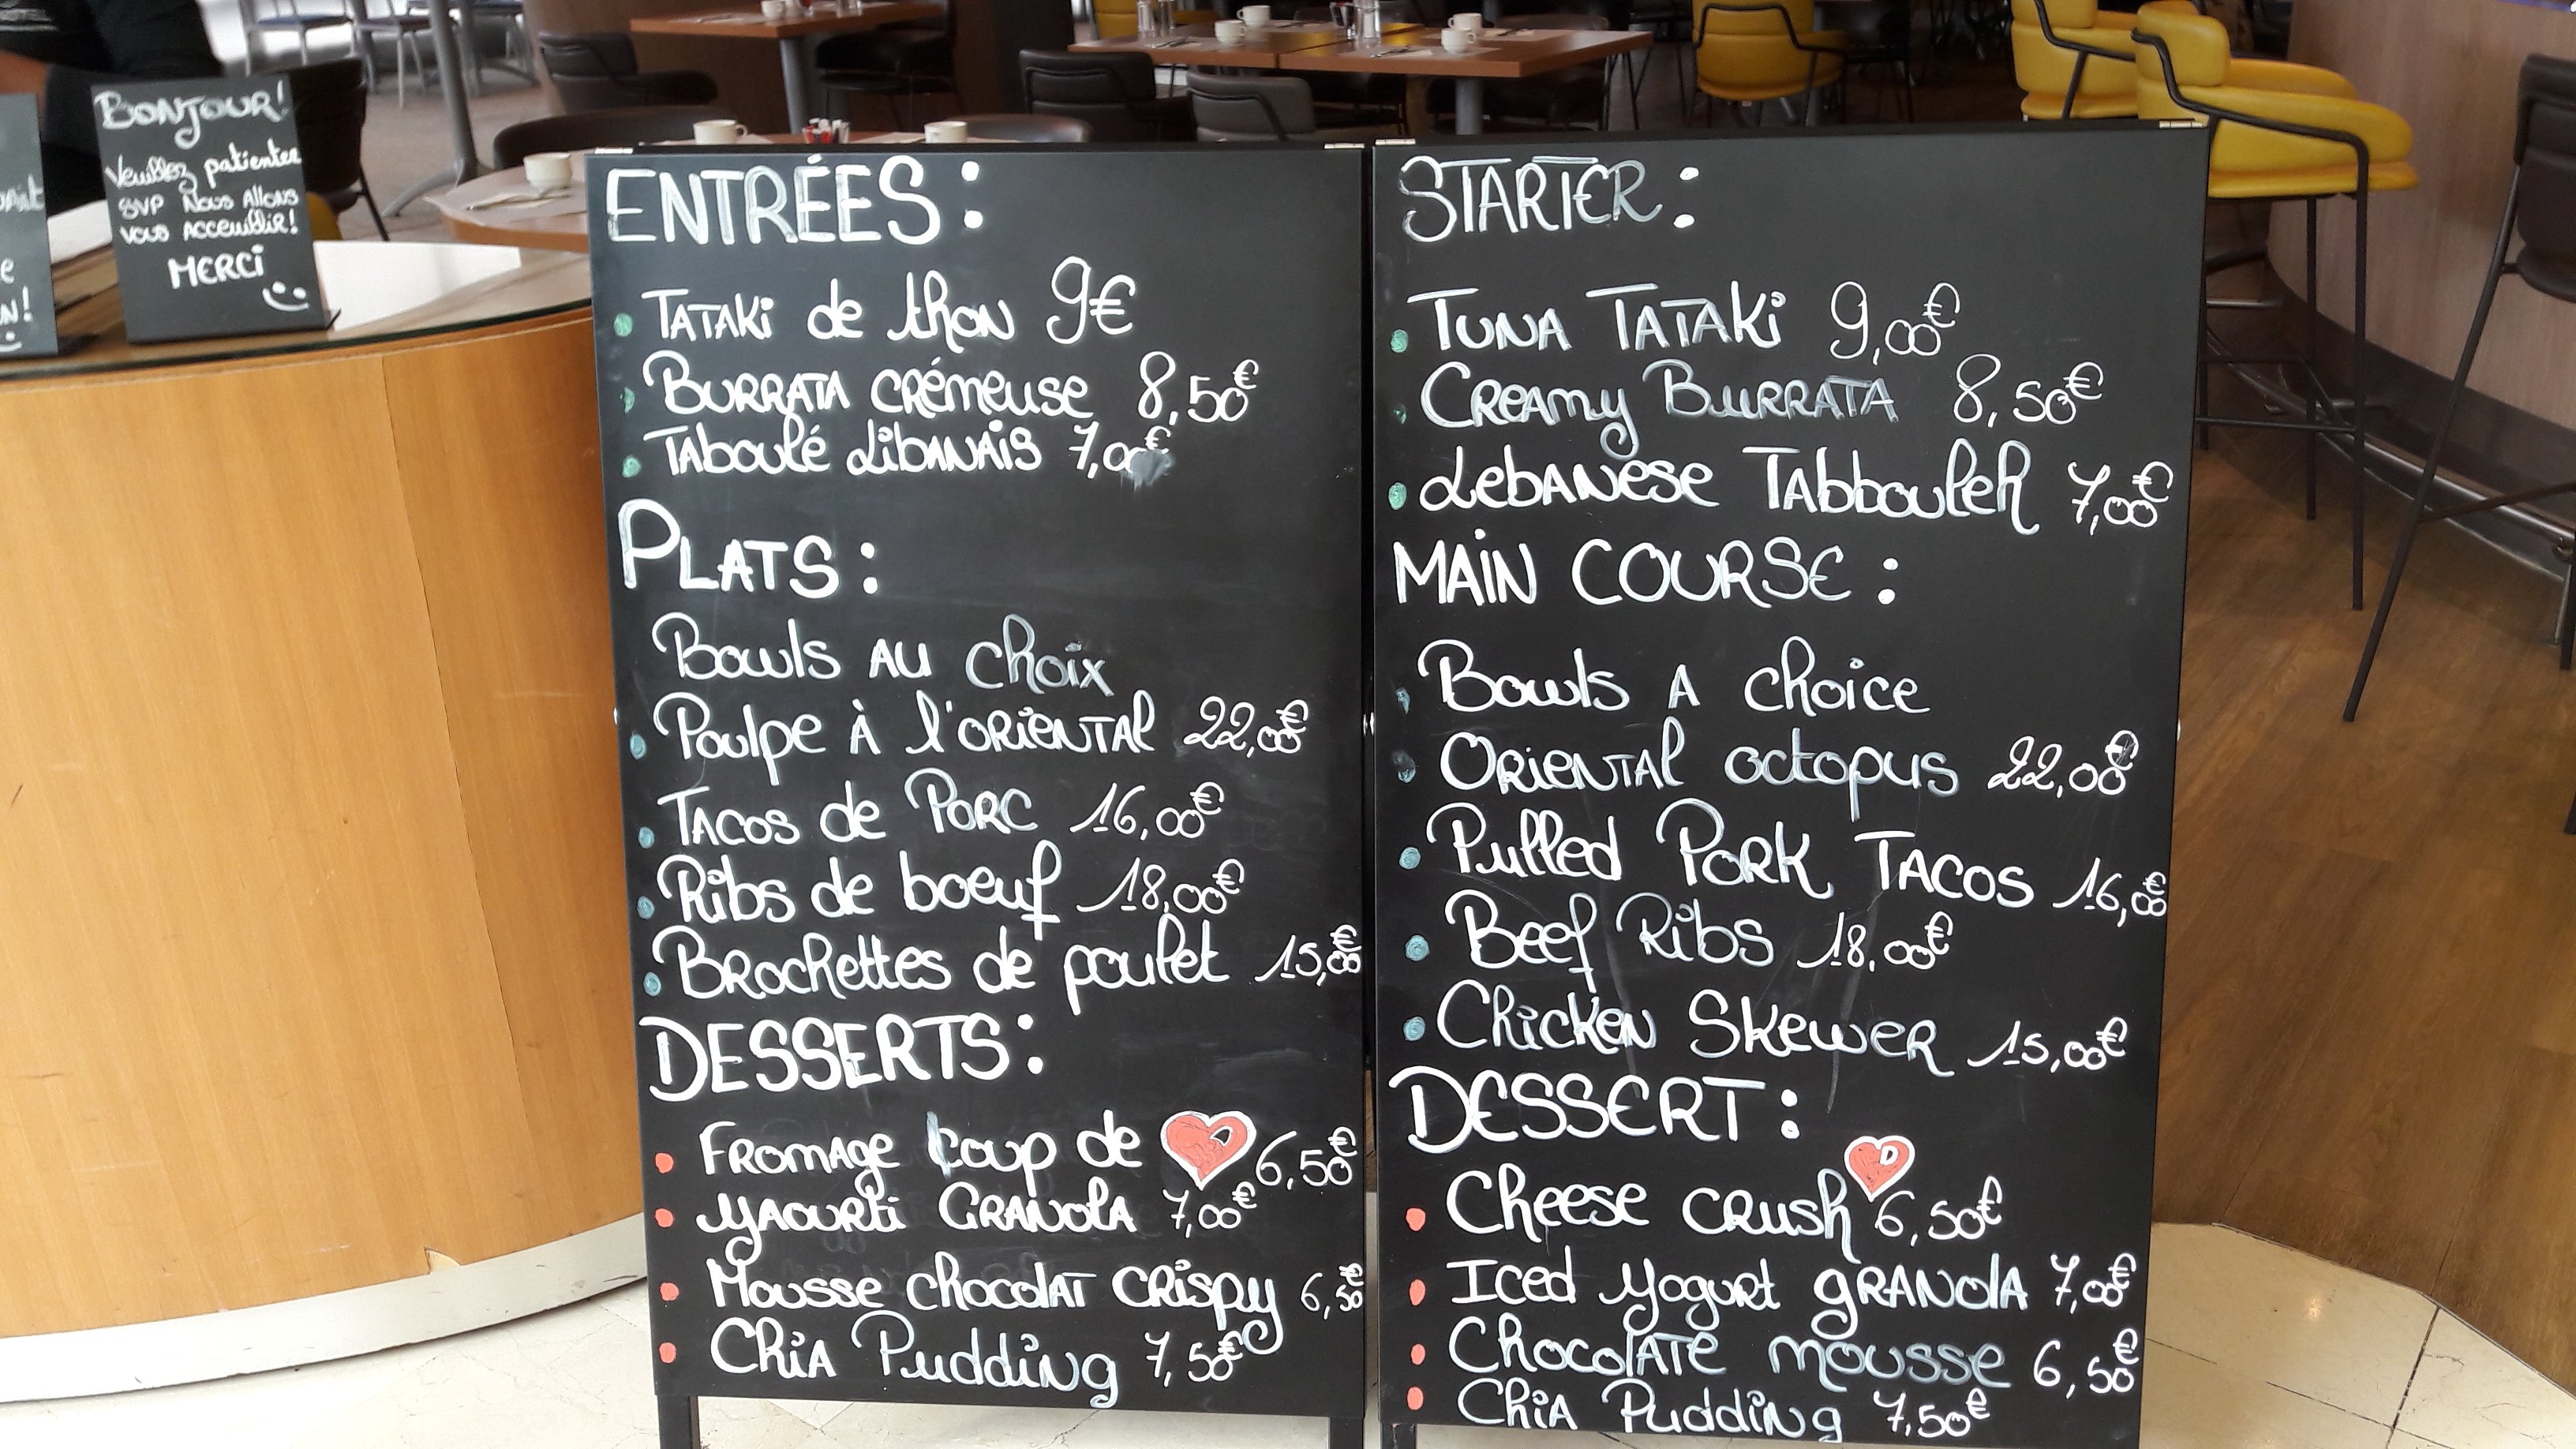 BONJOUR!
Veuillez patienter
SVP Nous Allons
vous accueillir!
MERCI
ENTRÉES:
TATAKI de thon 9€
BURRATA CRÉMEUSE 8,50€
TABOULÉ LIBANAIS 7,00€
PLATS:
Bowls AU choix
Poulpe À l'ORIENTAL 22,00€
TACOS de PORC 16,00€
Ribs de boeuf 18,00€
BROCHETTES de poulet 15,00€
DESSERTS:
FROMAGE coup de 6,50€
YAOURTi GRANOLA 7,00€
Mousse chocolat CRISPY 6,50€
CHIA Pudding 7,50€
STARTER:
TUNA TATAKI 9,00€
CREAMY BURRATA 8,50€
LEBANESE TABBOULEH 7,00€
MAIN COURSE:
Bowls A choice
ORIENTAL octopus 22,00€
Pulled PORK TACOS 16,00€
Beef Ribs 18,00€
Chicken SKEWER 15,00€
DESSERT:
Cheese CRUSH 6,50€
Iced yogurt GRANOLA 7,00€
CHOCOLATE mousse 6,50€
CHIA Pudding 7,50€